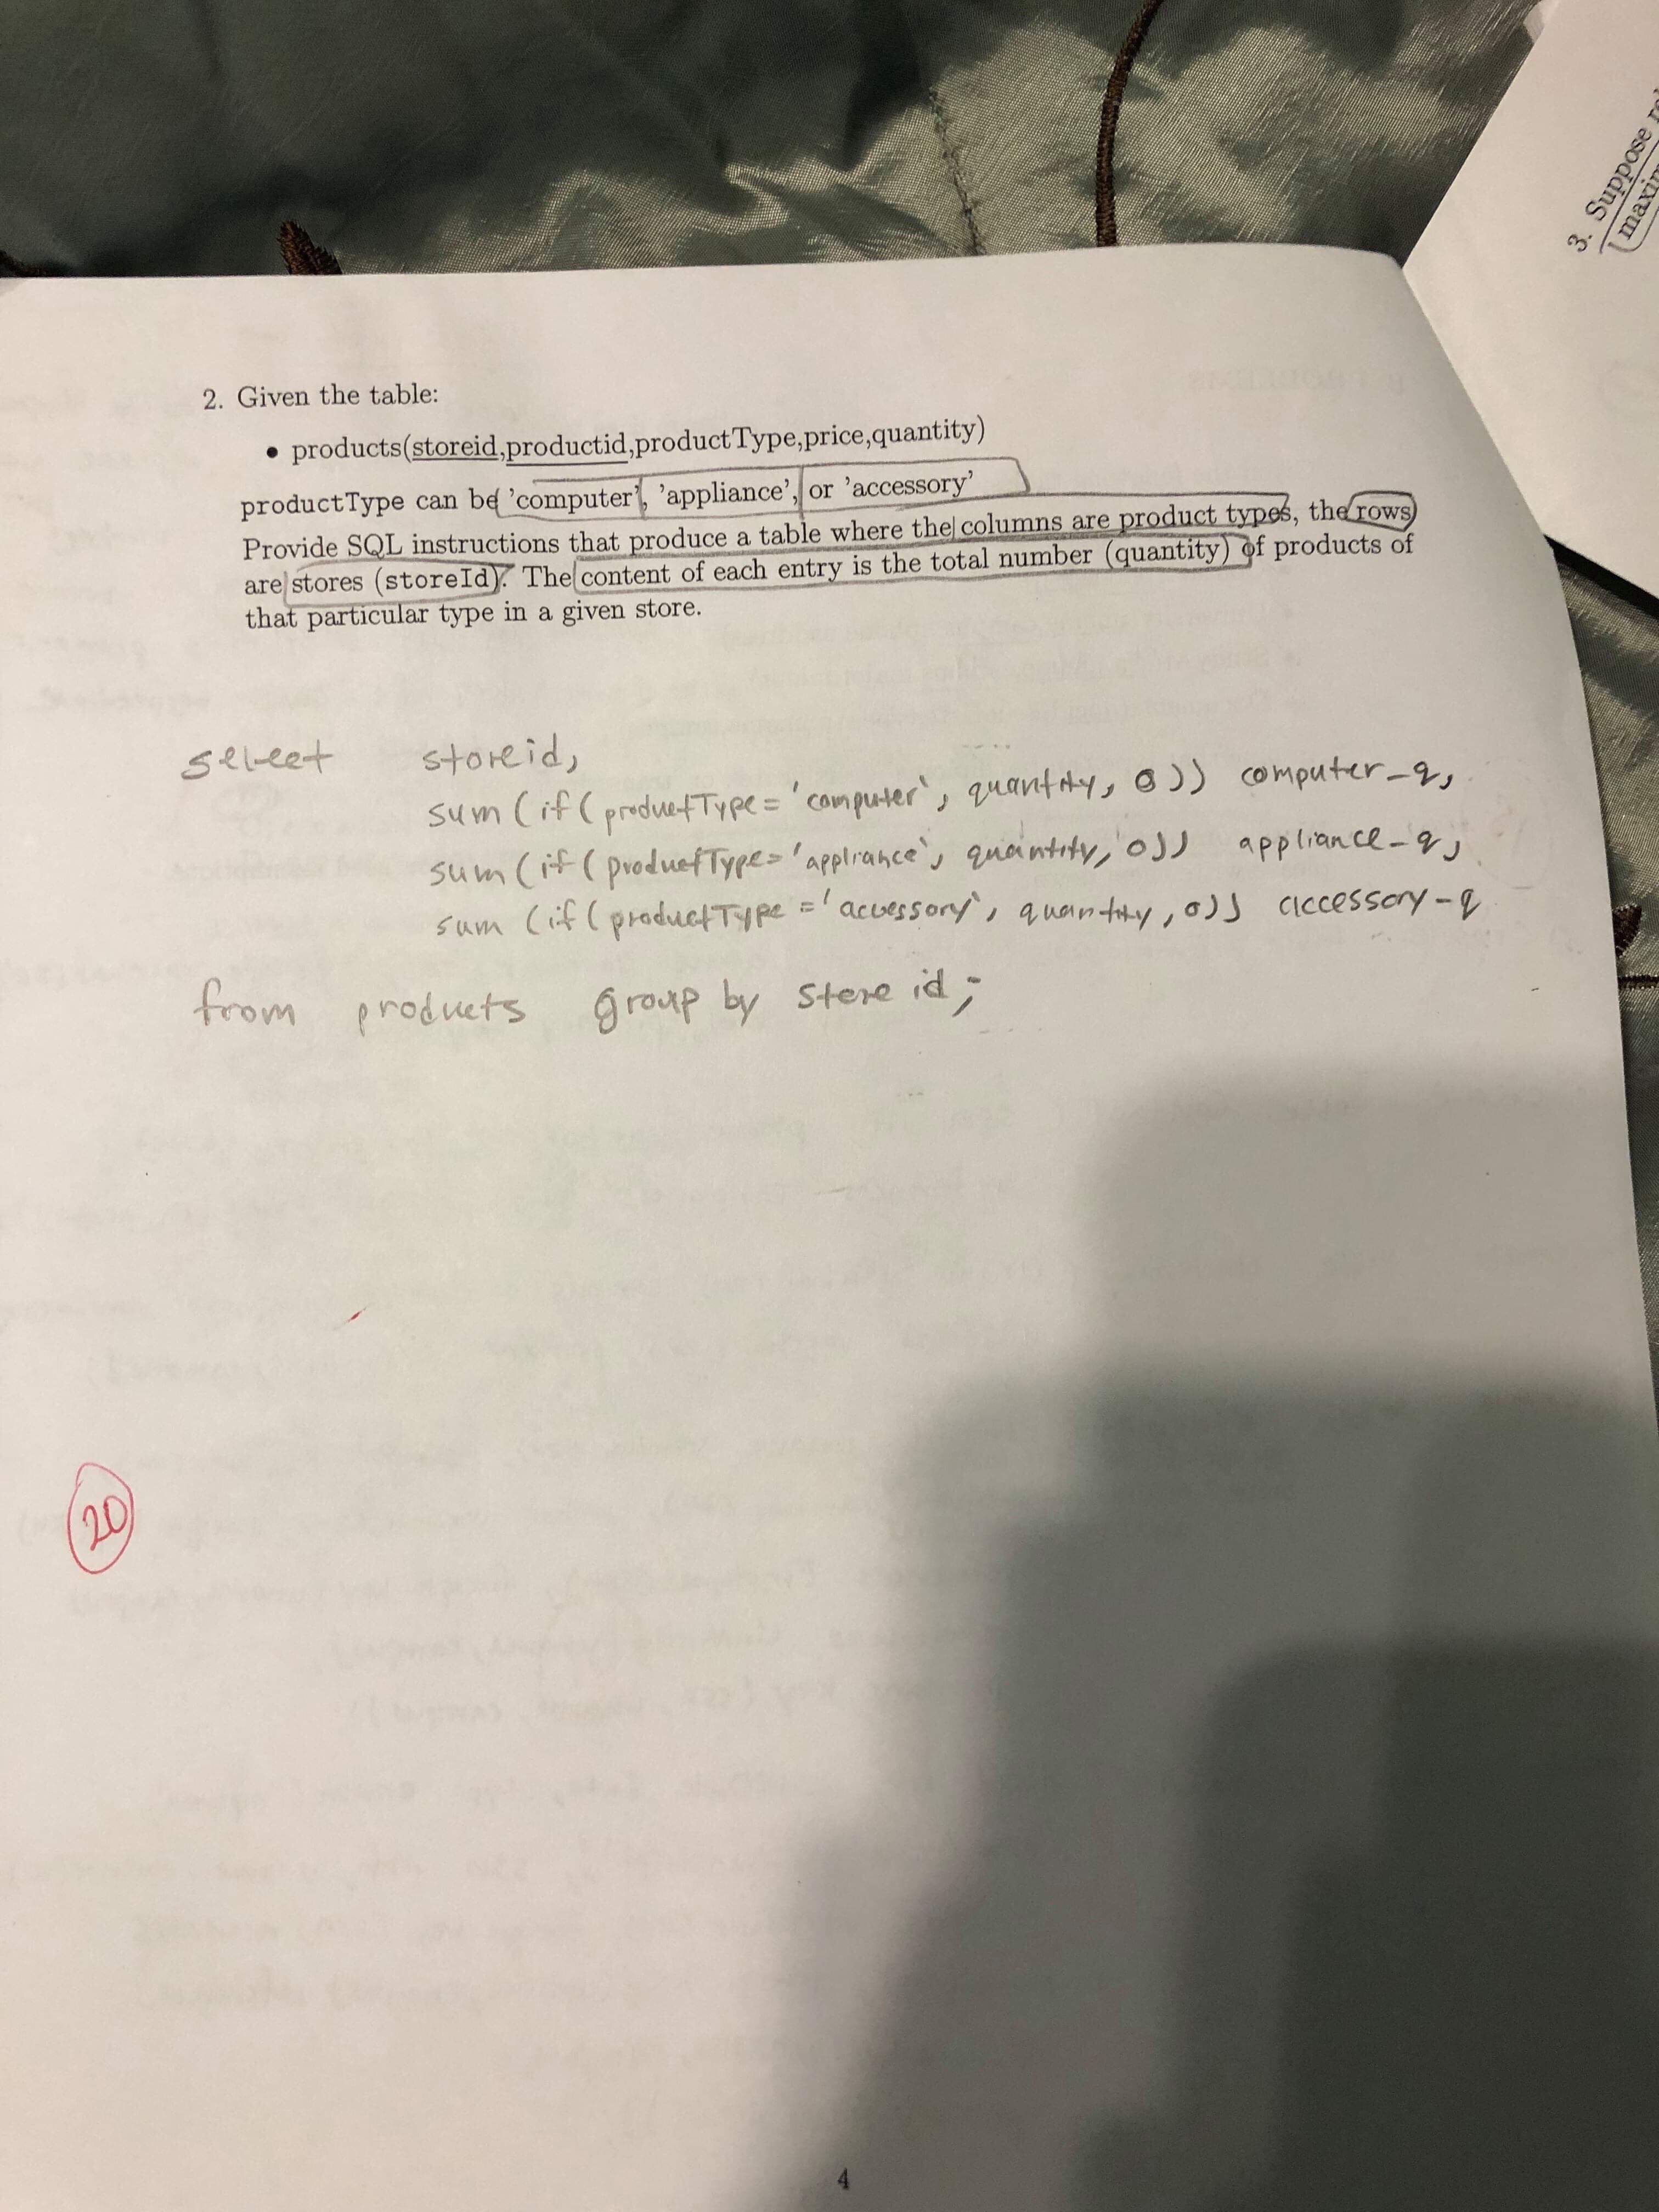 3. Suppose
2. Given the table:
• products(storeid,productid,productType,price,quantity)
productType can be 'computer', 'appliance', or 'accessory'
Provide SQL instructions that produce a table where the columns are product types, the rows
are stores (storeId). The content of each entry is the total number (quantity) of products of
that particular type in a given store.
select storeid,
sum (if (productType = 'computer', quantity, 0)) computer_q,
sum (if (productType = 'appliance', quantity, 0)) appliance_q,
sum (if (productType = 'accessory', quantity, 0)) accessory_q
from products group by store id;
20
4